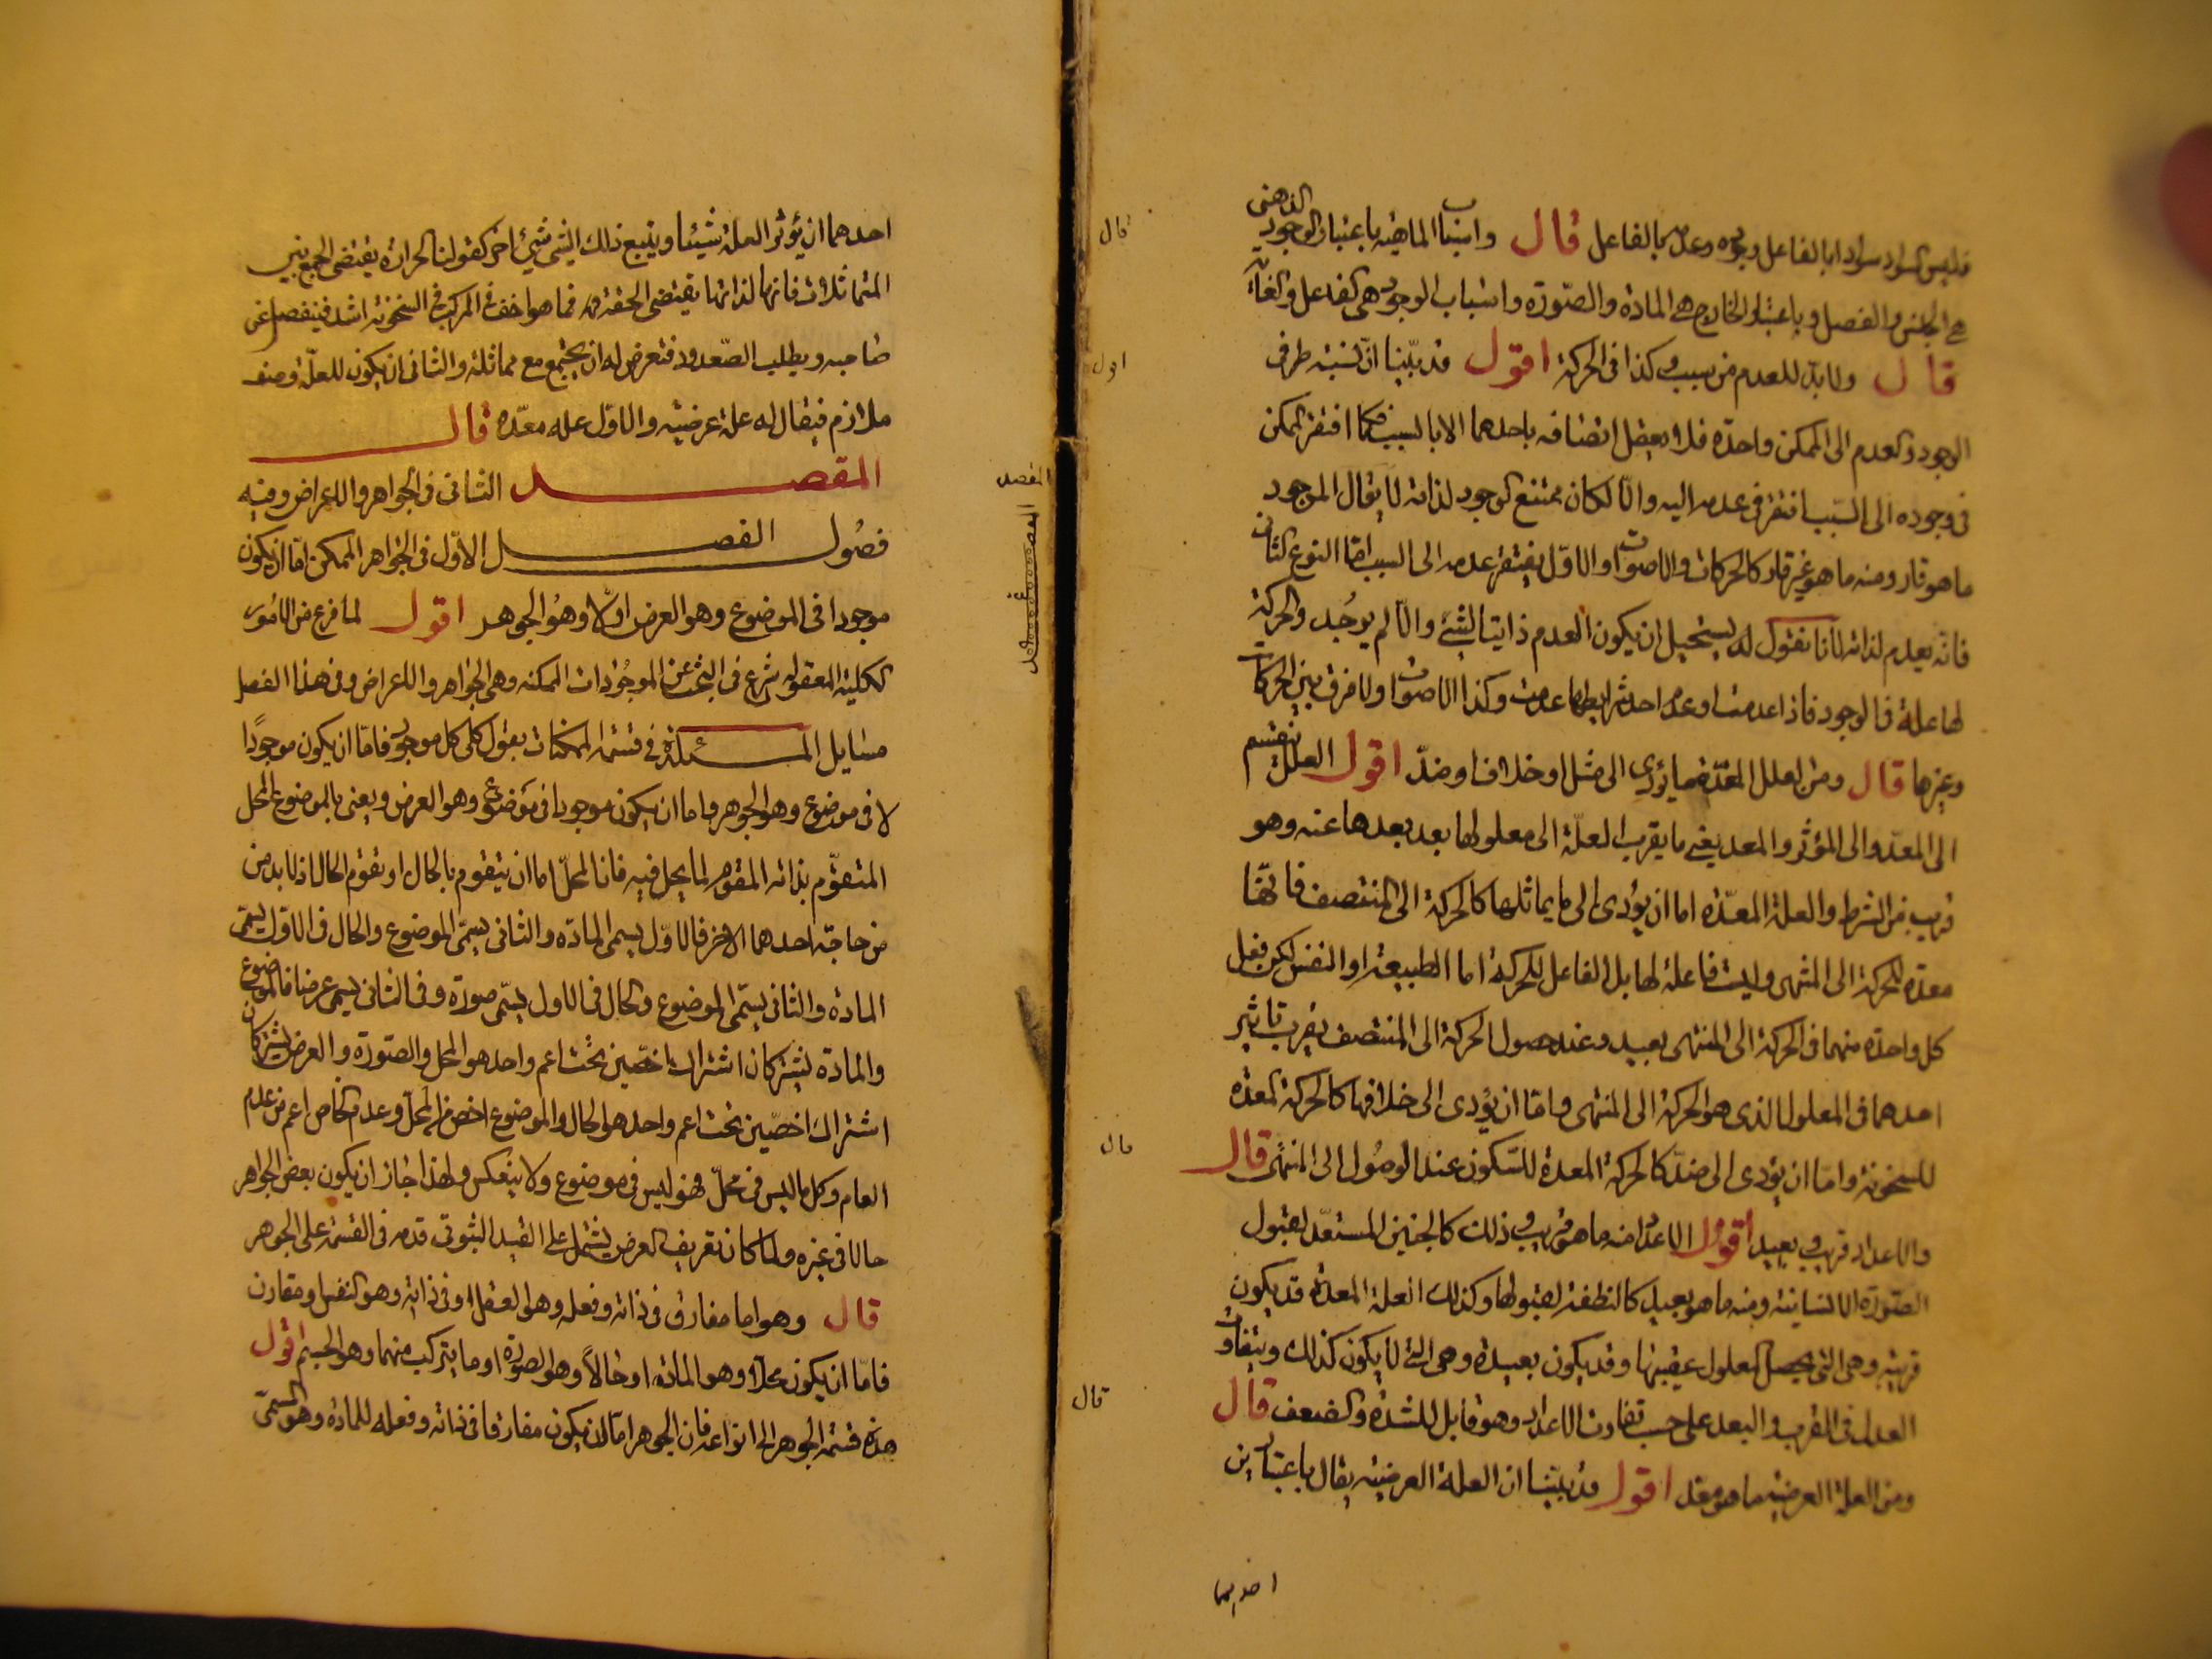 فليس السواد سوادا بالفاعل وجوده وعدمه بالفاعل قال واسباب الماهية باعتبار الوجود الذهنى
هى الجنس والفصل وباعتبار الخارج هى المادة والصورة واسباب الوجود هى الفاعل والغاية
قال ولا بد للعدم من سبب وكذا فى الحركة اقول قد بيّنا ان نسبة طرفى
الوجود والعدم الى الممكن واحدة فلا يعقل اتصافه باحدهما الا بالسبب فكما افتقر الممكن
فى وجوده الى السبب افتقر فى عدمه اليه والّا لكان ممتنع الوجود لذاته لا يقال الموجود
ما هو قار ومنه ما هو غير قار كالحركات والاصوات والاوّل يفتقر عدمه الى السبب امّا النوع الثانى
فانه يعدم لذاته لانا نقول يستحيل ان يكون العدم ذاتيا لشئ والّا لم يوجد والحركة
لها علة فى الوجود فاذا عدمت او عدم احد شرايطها عدمت وكذا الاصوات ولا فرق بين الحركات
وغيرها قال ومن العلل المعدّة ما يؤدى الى مثل او خلاف او ضدّ اقول العلل تنقسم
الى المعدّ والى المؤثر والمعد يعنى ما يقرب العلّة الى معلولها بعد بعدها عنه وهو
قريب من الشرط والعلة المعدّة اما ان يؤدى الى ما يماثلها كالحركة الى المنتصف فانها
معدّة للحركة الى المنتهى وليست فاعلة لها بل الفاعل للحركة اما الطبيعة او النفس لكن فعل
كل واحدة منهما فى الحركة الى المنتهى بعيد وعند حصول الحركة الى المنتصف يقرب تاثير
احدهما فى المعلول الذى هو الحركة الى المنتهى وامّا ان يؤدى الى خلافها كالحركة المعدّة
للسخونة وامّا ان يؤدى الى ضدّ كالحركة المعدة للسّكون عند الوصُول الى المنتهى قال
والاعداد قريب وبعيد اقول الاعداد منه ما هو قريب وذلك كالجنين المستعدّ لقبول
الصّورة الانسانية ومنه ما هو بعيد كالنطفة لقبولها وكذلك العلة المعدّة قد يكون
قريبة وهى التى يحصل المعلول عقيبها وقد يكون بعيدة وهى التى لا يكون كذلك ويتفاوت
العلل فى القرب والبعد على حسب تفاوت الاعداد وهو قابل للشدّة والضعف قال
ومن العلة العرضية ما هو معد اقول قد بيّنا ان العلة العرضية يقال باعتبارين
احدهما
قال
اقول
قال
قال
احدهما ان يؤثر العلة شيئا ويتبع ذلك الشئ شئ اخر كقولنا الحرارة يقتضى الجمع بين
المتماثلات فانها لذاتها يقتضى الخفة فما هو اخف فى المركب فى السخونة اشد فينفصل عن
صاحبه ويطلب الصّعود فتعرض له ان يجتمع مع مماثله والثانى ان يكون للعلّة وصف
ملازم فيقال له علة عرضية والاوّل علة معدّة قال
المقصد الثانى فى الجواهر والاعراض وفيه
فصُول الفصل الاوّل فى الجواهر الممكن امّا ان يكون
موجودا فى الموضوع وهو العرض او لا وهُو الجوهر اقول لما فرغ من الامُور
الكلية المعقوله شرع فى البحث عن الموجُودات الممكنه وهى الجواهر والاعراض وفى هذا الفصل
مسايل المسئلة فى قسمة الممكنات بقول كلى كل موجود فامّا ان يكون موجودًا
لا فى موضوع وهو الجوهر واما ان يكون موجودا فى موضوع وهو العرض ويعنى بالموضوع المحل
المتقوّم بذاته المقوم لما يحل فيه فانا المحلّ اما ان يتقوم بالحال او يقوم الحال اذ لا بد من
من حاجة احدهما الى الاخر فالاوّل يسمى المادّة والثانى يسمّى الموضوع والحال فى الاول يسمّى
المادة والثانى يسمّى الموضوع والحال فى الاول يسمّى صورة وفى الثانى يسمى عرضا فالموضوع
والمادة يشتركان اشتراك اخصّين تحت اعم واحد هو المحل والصّورة والعرض يشتركان
اشتراك اخصّين تحت اعم واحد هو الحال والموضوع اخص من المحلّ وعدم الخاص اعم من عدم
العام وكل ما ليس فى محلّ فهو ليس فى موضوع ولا ينعكس ولهذا جاز ان يكون بعض الجواهر
حالا فى غيره ولما كان تعريف العرض يشتمل على القيد الثبوتى قدمه فى القسمة على الجوهر
قال وهو اما مفارق فى ذاته وفعله وهو العقل او فى ذاته وهو النفس او مقارن
فامّا ان يكون محلّا وهو المادّة او حالًا وهو الصورة او ما يتركب منهما وهو الجسم اقول
هذه قسمة الجوهر الى انواعه فان الجوهر امّا ان يكون مفارقا فى ذاته وفعله للمادّة وهو المسمّى
المقصد
الفصل